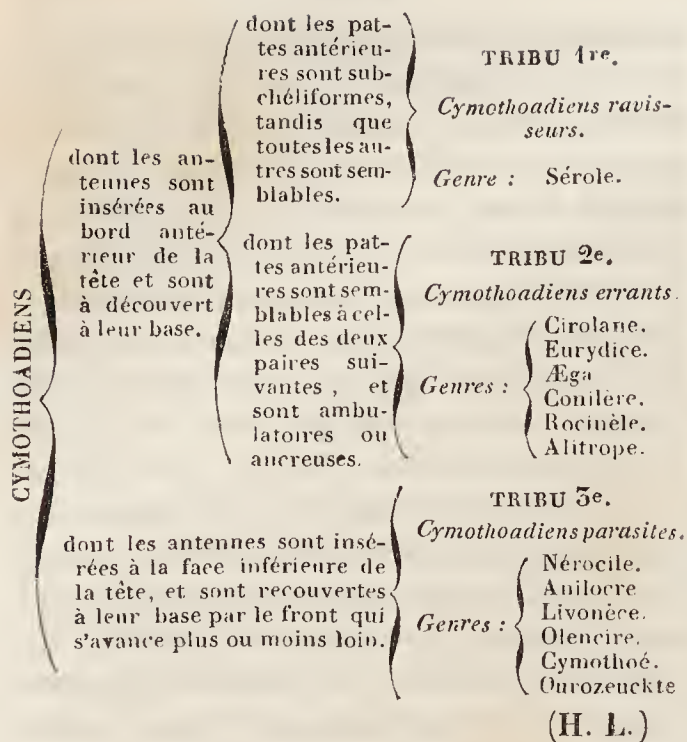 CYMOTHOADIENS
dont les an-
tennes sont
insérées au
bord anté-
rieur de la
tête et sont
à découvert
à leur base.
dont les pat-
tes antérieu-
res sont sub-
chéliformes,
tandis que
toutes les au-
tres sont sem-
blables.
TRIBU 1re.
Cymothoadiens ravis-
seurs.
Genre : Sérole.
dont les pat-
tes antérieu-
res sont sem-
blables à cel-
les des deux
paires sui-
vantes, et
sont ambu-
latoires ou
ancreuses.
TRIBU 2e.
Cymothoadiens errants.
Genres :
Cirolane.
Eurydice.
Æga
Conilère.
Rocinèle.
Alitrope.
dont les antennes sont insé-
rées à la face inférieure de
la tête, et sont recouvertes
à leur base par le front qui
s'avance plus ou moins loin.
TRIBU 3e.
Cymothoadiens parasites.
Genres :
Nérocile.
Anilocre
Livonèce.
Olencire.
Cymothoé.
Ourozeuckte
(H. L.)